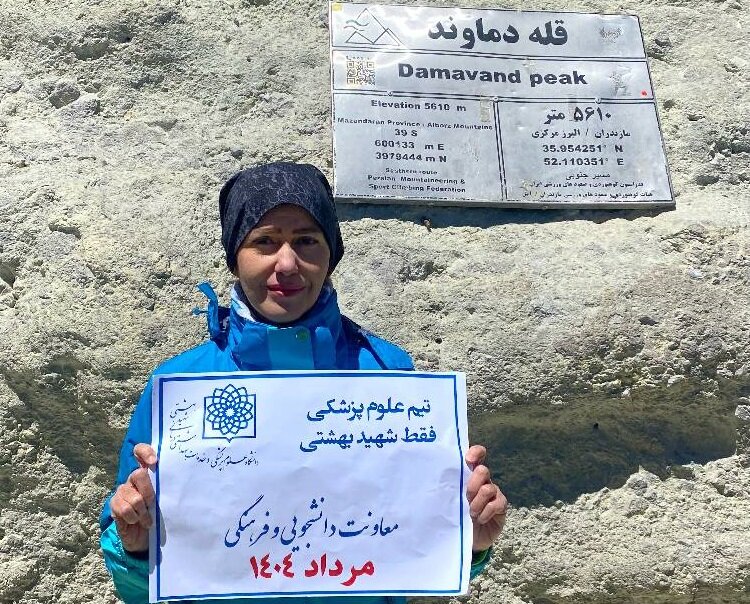 قله دماوند
Damavand peak
Elevation 5610 m
Mazandaran Province / Alborz Mountains
39 S
600133 m E
3979444 m N
Southern route
Persian Mountaineering &
Sport Climbing Federation
۵۶۱۰ متر
مازندران / البرز مرکزی
35.954251° N
52.110351° E
مسیر جنوبی
فدراسیون کوهنوردی و صعودهای ورزشی ایران
هیات کوهنوردی و صعودهای ورزشی مازندران
تیم علوم پزشکی
فقط شهید بهشتی
دانشگاه علوم پزشکی و خدمات
معاونت دانشجویی و فرهنگی
مرداد ۱۴۰۴